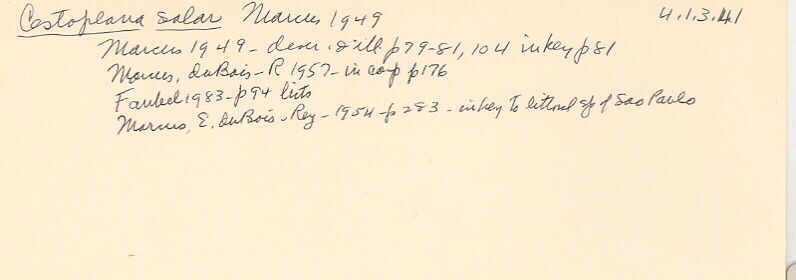 Cestoplana salar Marcus 1949 4.1.3.41
Marcus 1949 - descr. & ill p79-81, 104 in key p81
Marcus, duBois-R 1957 - in comp p176
Faubel 1983 - p94 lists
Marcus, E. duBois-Rey - 1954 - p283 - in key to littoral sp of Sao Paulo